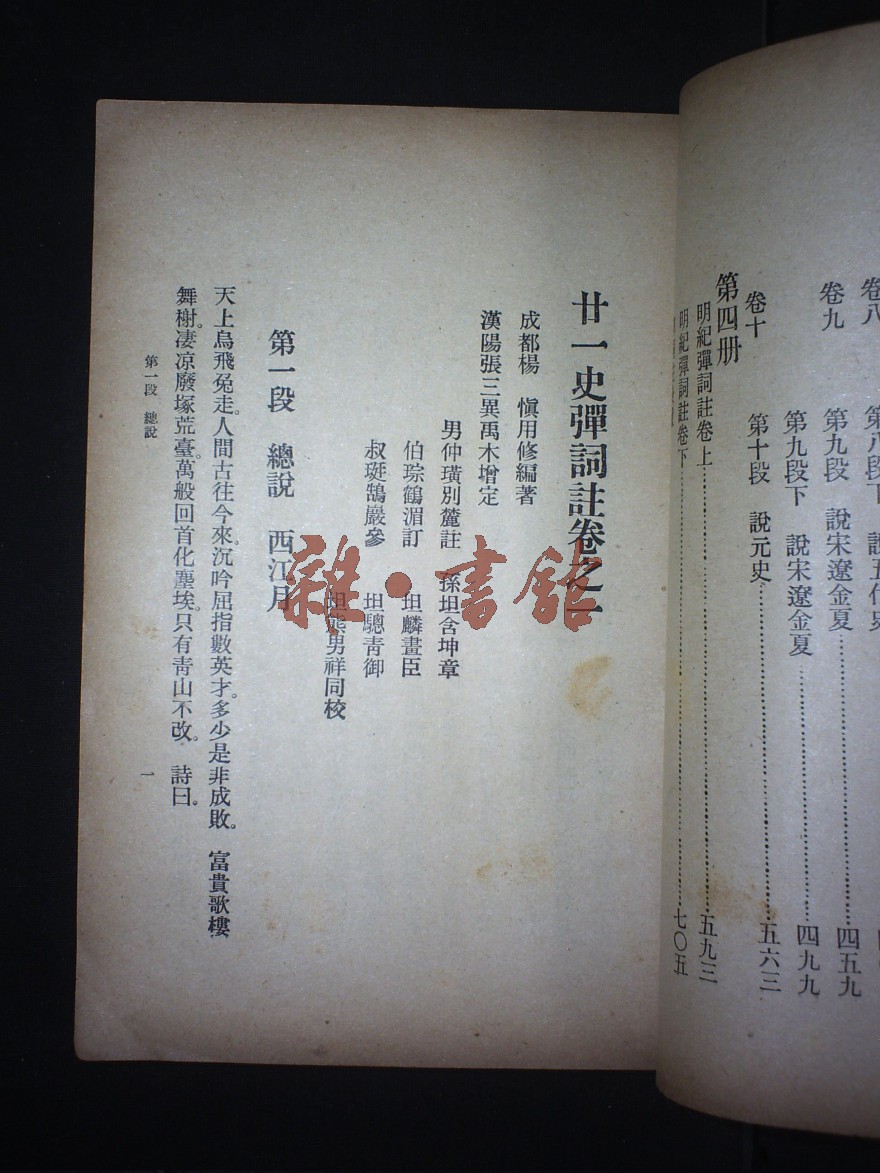 卷八 第八段 說五代史
卷九 第九段 說宋遼金夏 四五九
第九段下 說宋遼金夏 四九九
卷十 第十段 說元史 五六三
第四册
明紀彈詞註卷上 五九三
明紀彈詞註卷下 七〇五
廿一史彈詞註卷之一
成都楊 愼用修編著
漢陽張三異禹木增定
男仲璜別麓註 孫坦含坤章
伯琮鶴湄訂 坦麟畫臣
叔珽鵠巖參 坦驄青御
坦熊男祥同校
第一段 總說 西江月
天上烏飛兔走。人間古往今來。沉吟屈指數英才。多少是非成敗。 富貴歌樓
舞榭。淒凉廢塚荒臺。萬般回首化塵埃。只有青山不改。 詩曰。
第一段 總說 一
雜·書館